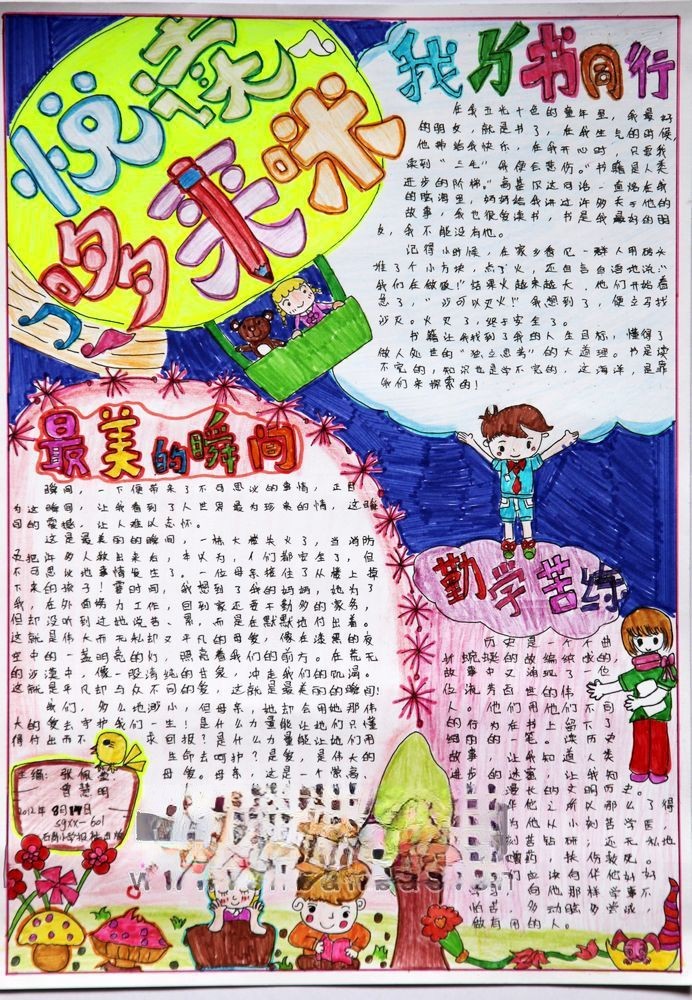 悦读
多采咪
我与书同行
在我五光十色的童年里，我最好
的朋友，就是书了，在我生气的时候，
他带给我快乐，在我开心时，只要我
来到“三毛”我便会悲伤。“书籍是人类
进步的阶梯。”高基仅这句话一直陪在我
的脑海里，妈妈给我讲过许多关于他的
故事，我也很爱读书，书是我最好的朋
友，我不能没有他。
记得小时候，在家乡看见一群人用砖头
堆了个小方块，点了火，还自言自语地说：“
我们在做饭！”结果火越来越大，他们开始着
急了，“沙可以灭火！”我想到了，便立马找
沙灭。火灭了，终于安全了。
书籍让我找到了我的人生目标，懂得了
做人处世的“独立思考”的大道理。书是读
不完的，知识也是学不完的，这海洋，是靠
我们来探索的！
最美的瞬间
瞬间，一下便带来了不可思议的事情，正因
为这瞬间，让我看到了人世界最为珍来的情，这瞬
间的震撼，让人难以忘怀。
这是最美丽的瞬间，一栋大楼失火了，当消防
员把许多人救出来后，本以为，人们都安全了，但
不可思议地事情发生了。一位母亲接住了从楼上掉
下来的孩子！霎时间，我想到了我的妈妈，她为了
我，在外面努力工作，回到家还要不勤劳的家务，
但却没听到过她说苦、累，而是在默默地付出着。
这就是伟大而无私却又平凡的母爱，像在漆黑的夜
空中的一盏明亮的灯，照亮着我们的前方。在荒无
的沙漠中，像一股清纯的甘泉，冲走我们的饥渴。
这就是平凡却与众不同的爱，这就是最美丽的瞬间！
我们，多么地渺小，但母亲，她却会用她那伟
大的爱去守护我们一生！是什么力量能让她们只懂
得付出而不求回报？是什么力量能让她们用
生命去呵护？是爱，是伟大的
母爱。母亲，这是一个崇高
勤学苦练
历史是一个个曲
折蜿蜒的故编织成的，
故事中又涌现了一位
位流芳百世的伟
人。他们用他们不同
的行为在书上留下了
的一笔。读历史
故事，让我知道人类
进步的迷蜜，让我知
漫长的文明历史。
他之所以那么了得
为他从小刻苦学医，
刻苦钻研，还无私地
药，扶伤救死。
们也应向伟好好
向他那样学事不
怕苦，多动脑多尝试，
做有用的人。
主编：张佩
曾慧明
2012年9月19日